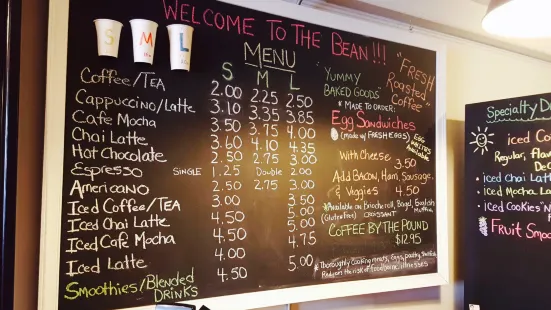 WELCOME TO THE BEAN!!!
S M L
MENU
S M L
COFFEE/TEA 2.00 2.25 2.50
CAPPUCCINO/LATTE 3.10 3.35 3.85
CAFE MOCHA 3.50 3.75 4.00
CHAI LATTE 3.60 4.10 4.35
HOT CHOCOLATE 2.50 2.75 3.00
ESPRESSO SINGLE 1.25 Double 2.00
AMERICANO 2.50 2.75 3.00
ICED COFFEE/TEA 3.00 3.50
ICED CHAI LATTE 4.50 5.00
ICED CAFÉ MOCHA 4.50 4.75
ICED LATTE 4.50 5.00
SMOOTHIES/BLENDED DRINKS 4.50 5.00
"YUMMY
BAKED GOODS"
"FRESH
ROASTED
COFFEE"
* MADE TO ORDER:
EGG SANDWICHES
(MADE w/ FRESH EGGS)
EGG WHITES
AVAILABLE
WITH CHEESE 3.50
ADD BACON, HAM, SAUSAGE,
& VEGGIES 4.50
*AVAILABLE ON Brioche roll, Bagel, English Muffin,
(Gluten free) CROISSANT
COFFEE BY THE POUND
$12.95
*Thoroughly cooking meats, eggs, poultry, shellfish
Reduces the risk of foodborne illnesses
SPECIALTY D
iced Co
Regular, flav
De
• iced Chai Latt
• iced Mocha La
• iced "COOKIES 'N
FRUIT SMOO